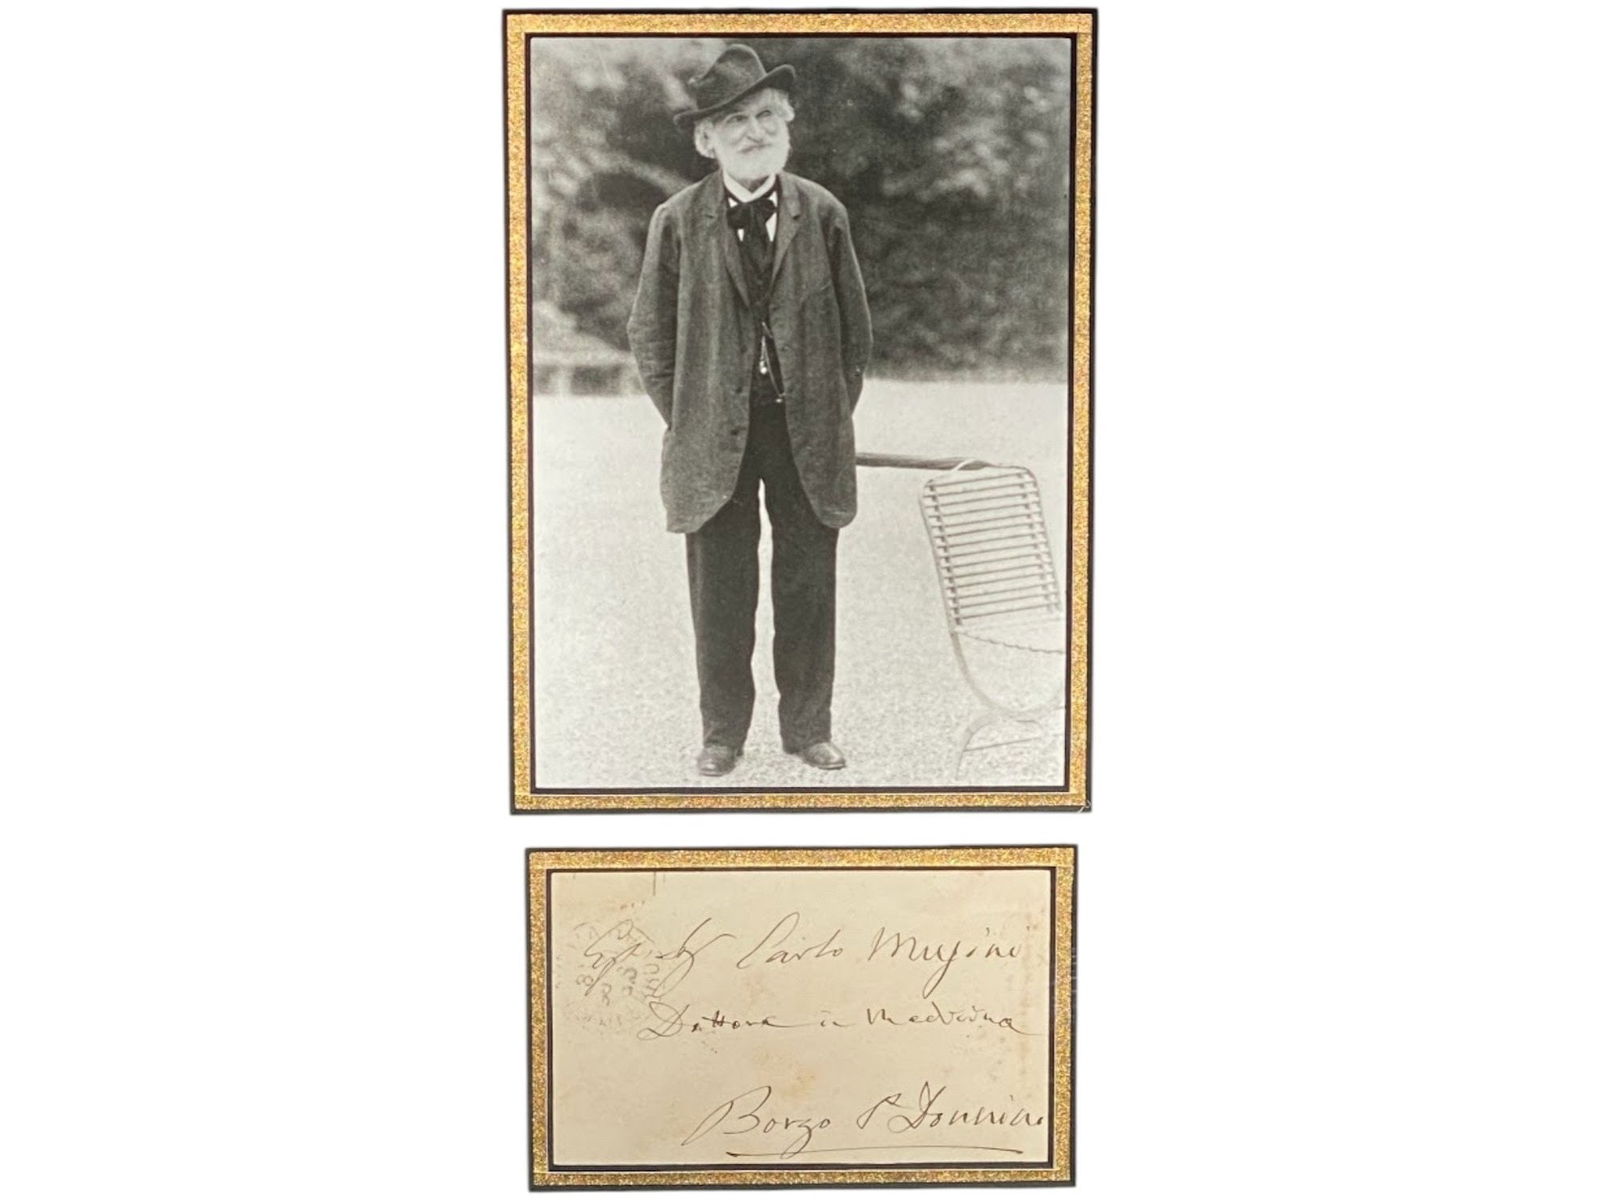 Carlo Mugino
Dottore in Medicina
Borgo S. Donnino